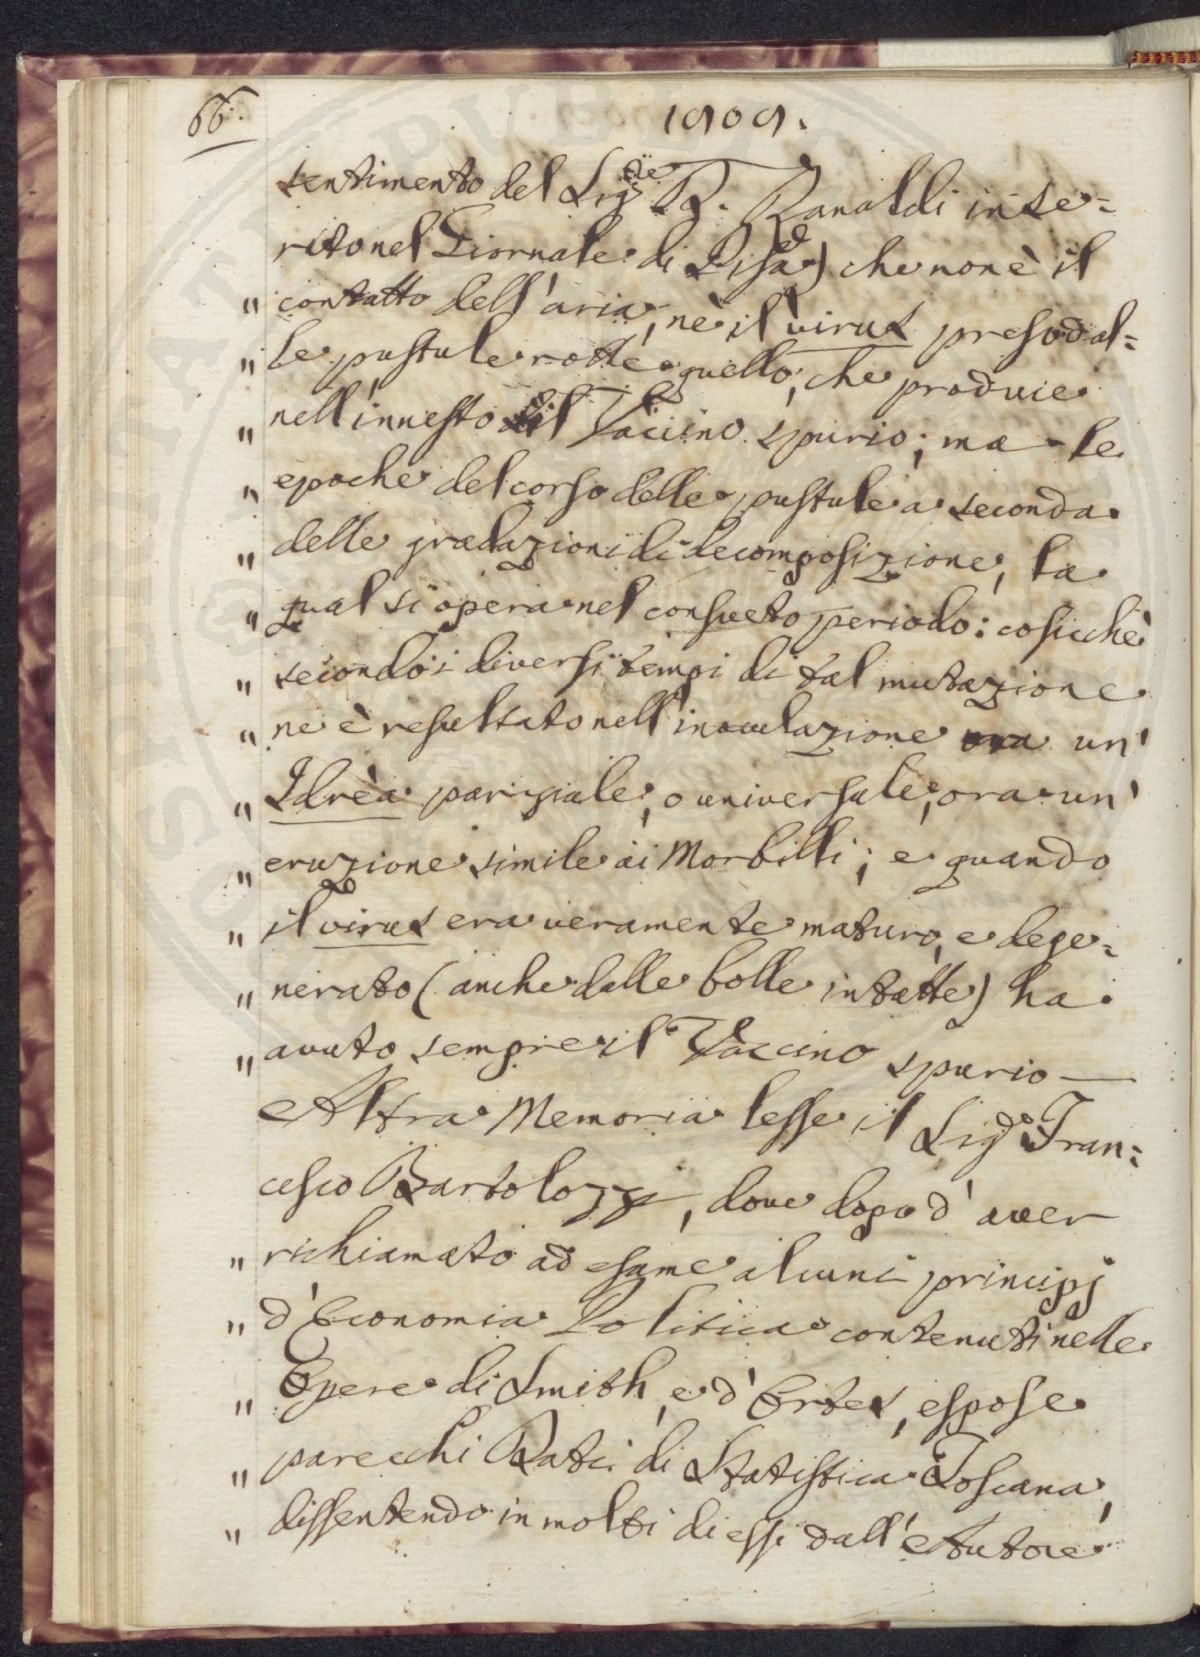 66.
1909.
sentimento del Sig.re B. Ranaldi inse=
rito nel Giornale di Pisa) che non è il
" contatto dell'aria, nè il virus preso dal=
" le pustule rotte quello, che produce
" nell'innesto il Vaccino spurio; ma le
" epoche del corso delle pustule a seconda
" delle gradazioni di decomposizione, la
" qual si opera nel consueto periodo: cosicchè
" secondo i diversi tempi di tal mutazione
" ne è resultato nell'inoculazione ora un'
" Idrèa parziale, o universale, ora un'
" eruzione simile ai Morbilli; e quando
" il virus era veramente maturo, e dege=
" nerato (anche dalle bolle intatte) ha
" avuto sempre il Vaccino spurio —
Altra Memoria lesse il Sig.r Fran=
cesco Bartolozzi, dove dopo d'aver
" richiamato ad esame alcuni principj
" d'Economia Politica contenuti nelle
" Opere di Smith, e d'Ortes, espose
" parecchi Dati di Statistica Toscana,
" dissentendo in molti di essi dall'Autore